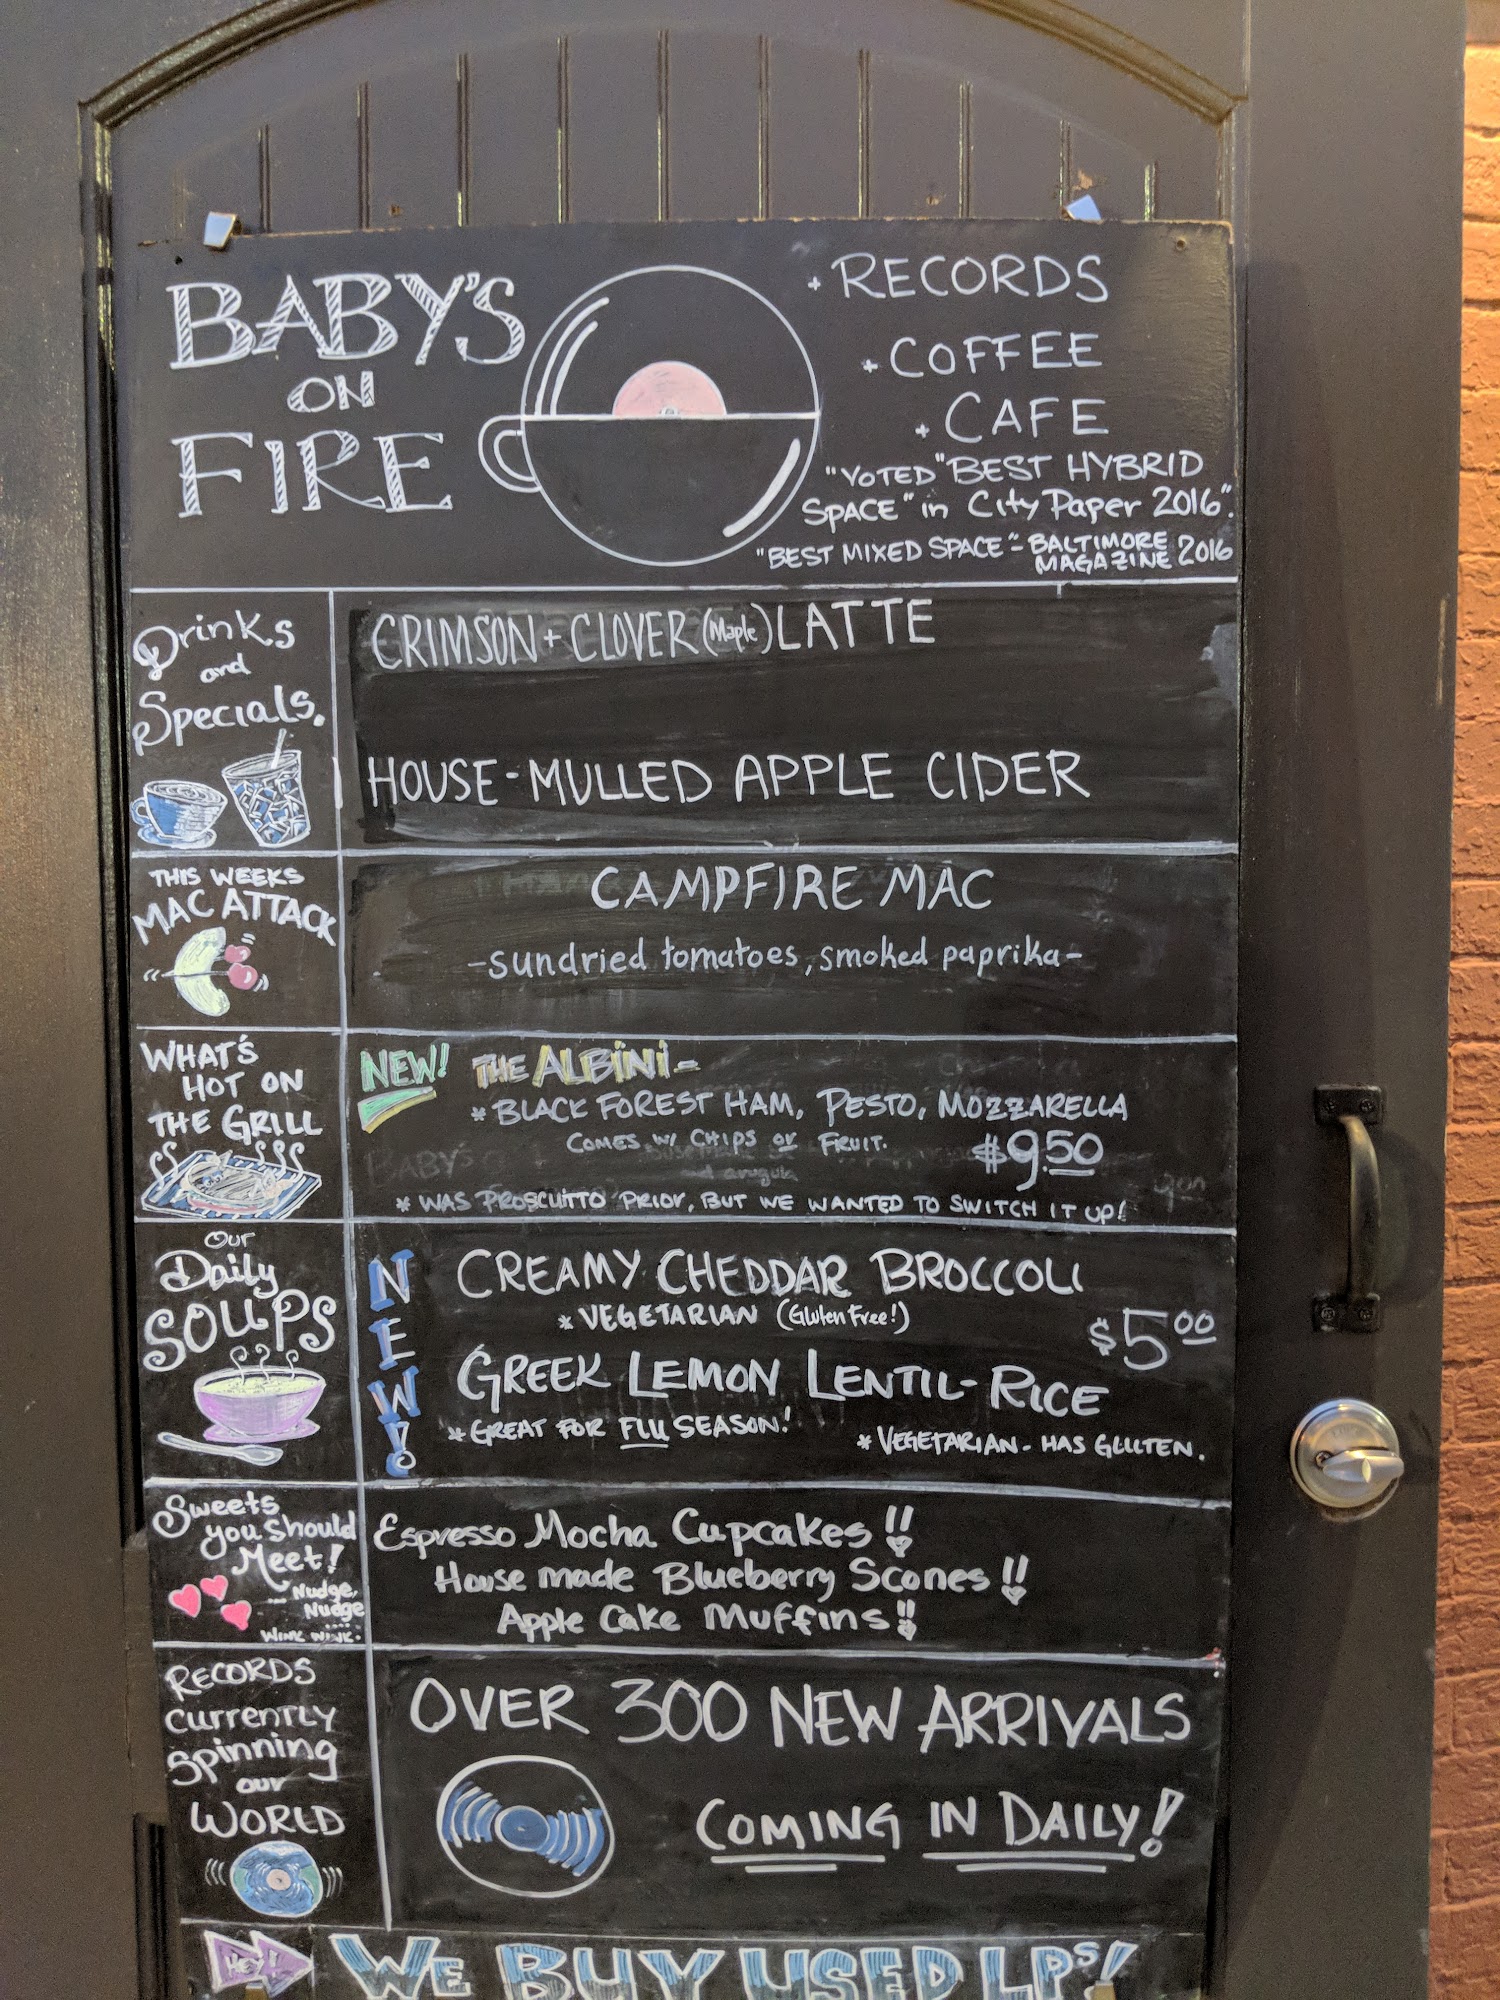 BABY'S
ON
FIRE
+ RECORDS
+ COFFEE
+ CAFE
"VOTED "BEST HYBRID
SPACE" in City Paper 2016".
"BEST MIXED SPACE" - BALTIMORE
MAGAZINE 2016
Drinks
and
Specials.
CRIMSON + CLOVER (Maple) LATTE
HOUSE-MULLED APPLE CIDER
THIS WEEKS
MAC ATTACK
CAMPFIRE MAC
-sundried tomatoes, smoked paprika-
WHAT'S
HOT ON
THE GRILL
NEW! THE ALBINI -
* BLACK FOREST HAM, PESTO, MOZZARELLA
COMES W/ CHIPS or FRUIT. $9.50
* WAS PROSCUITTO PRIOR, BUT WE WANTED TO SWITCH IT UP!
Our
Daily
SOUPS
NEW!
CREAMY CHEDDAR BROCCOLI
* VEGETARIAN (Gluten Free!)
$5.00
GREEK LEMON LENTIL-RICE
* GREAT FOR FLU SEASON! * VEGETARIAN - HAS GLUTEN.
Sweets
you should
Meet!
... Nudge,
Nudge
....
WINK WINK.
Espresso Mocha Cupcakes!!
House made Blueberry Scones!!
Apple Cake Muffins!!
RECORDS
CURRENTLY
Spinning
our
WORLD
OVER 300 NEW ARRIVALS
COMING IN DAILY!
HEY!
WE BUY USED LPs!